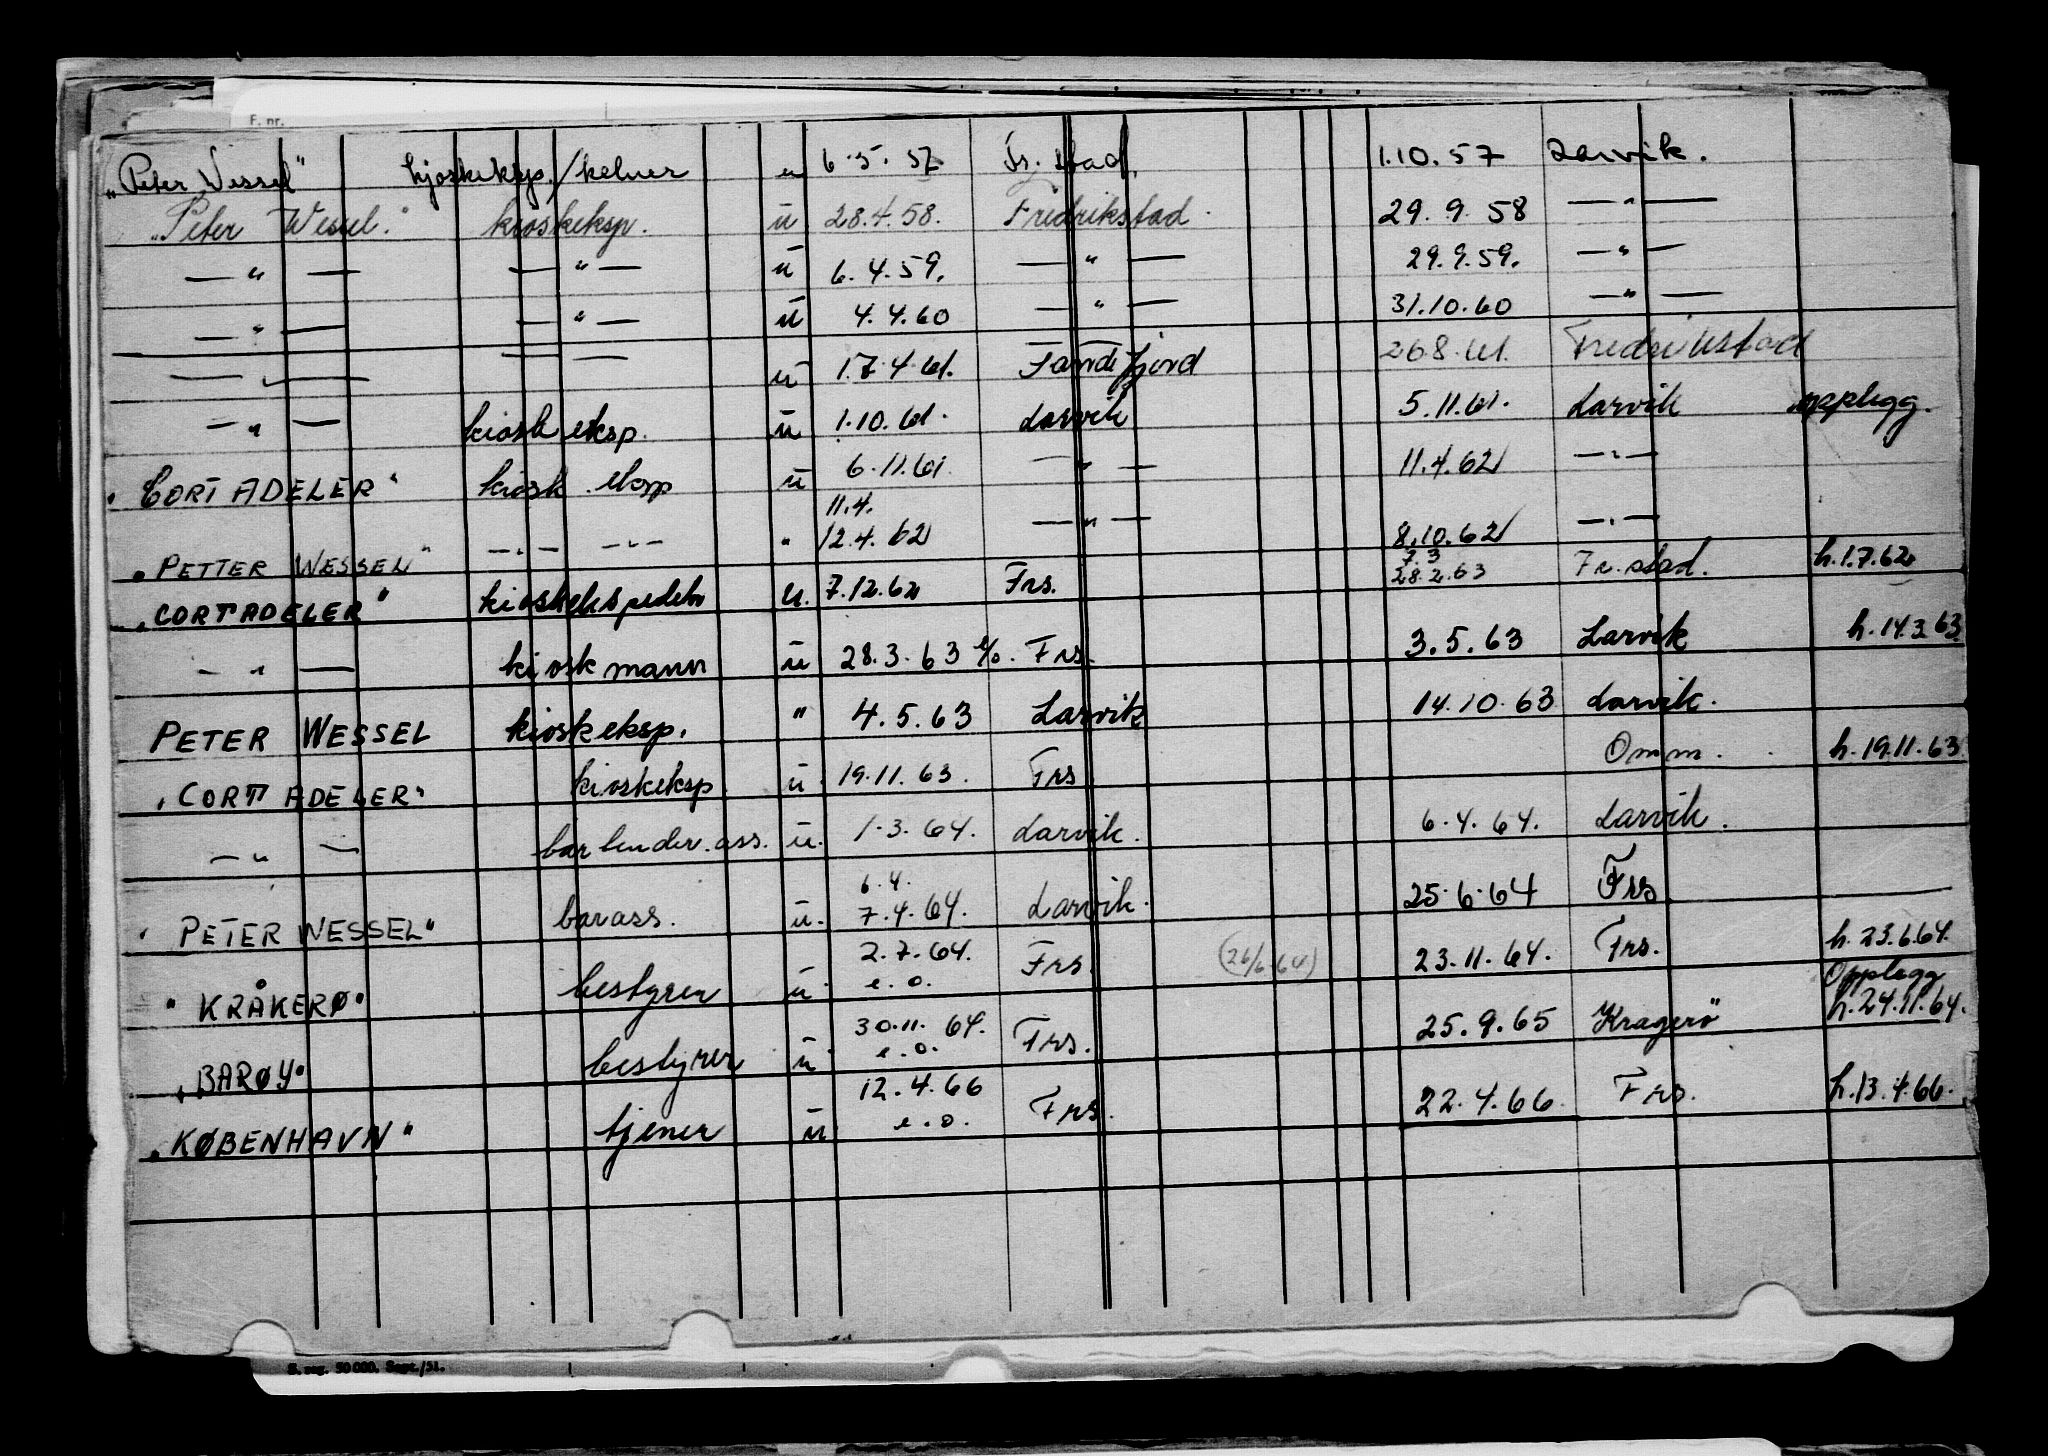 F. nr.
„Peter Wessel" kjoskeksp./kelner u 6.5.57 Fr.stad. 1.10.57 Larvik.
„Peter Wessel." kioskeksp. u 28.4.58. Fredrikstad. 29.9.58 — " —
— " — — " — u 6.4.59. — " — 29.9.59. — " —
— " — — " — u 4.4.60 — " — 31.10.60 — " —
— " — — — u 17.4.61. Sandefjord 26.8.61. Fredrikstad
— " — kiosk eksp. u 1.10.61. Larvik 5.11.61. Larvik opplegg.
"CORT ADELER" kiosk.eksp u 6.11.61. — " — 11.4.62 — " —
11.4.
"PETTER WESSEL" — " — — " — " 12.4.62 — " — 8.10.62 — " —
7.3
"CORT ADELER" kioskekspeditør u. 7.12.62 Frs. 28.2.63 Fr.stad. h.1.7.62
— " — kioskmann u 28.3.63 e/o. Frs. 3.5.63 Larvik h.14.3.63
PETER WESSEL kioskeksp. " 4.5.63 Larvik 14.10.63 Larvik.
"CORT ADELER" kioskeksp. u. 19.11.63. Frs Omm. h.19.11.63
— " — bartender.ass. u. 1.3.64. Larvik. 6.4.64. Larvik.
6.4.
"PETER WESSEL" barass. u. 7.4.64. Larvik. 25.6.64 Frs
"KRÅKERØ" bestyrer u 2.7.64. Frs. (26/6 64) 23.11.64. Frs. h.23.6.64.
e.o. Opplegg
"BARØY" bestyrer u 30.11.64. Frs. 25.9.65 Kragerø h.24.11.64.
e.o.
"KØBENHAVN" tjener u 12.4.66 Frs. 22.4.66. Frs. h.13.4.66.
e.o.
S. reg. 50 000. Sept./51.